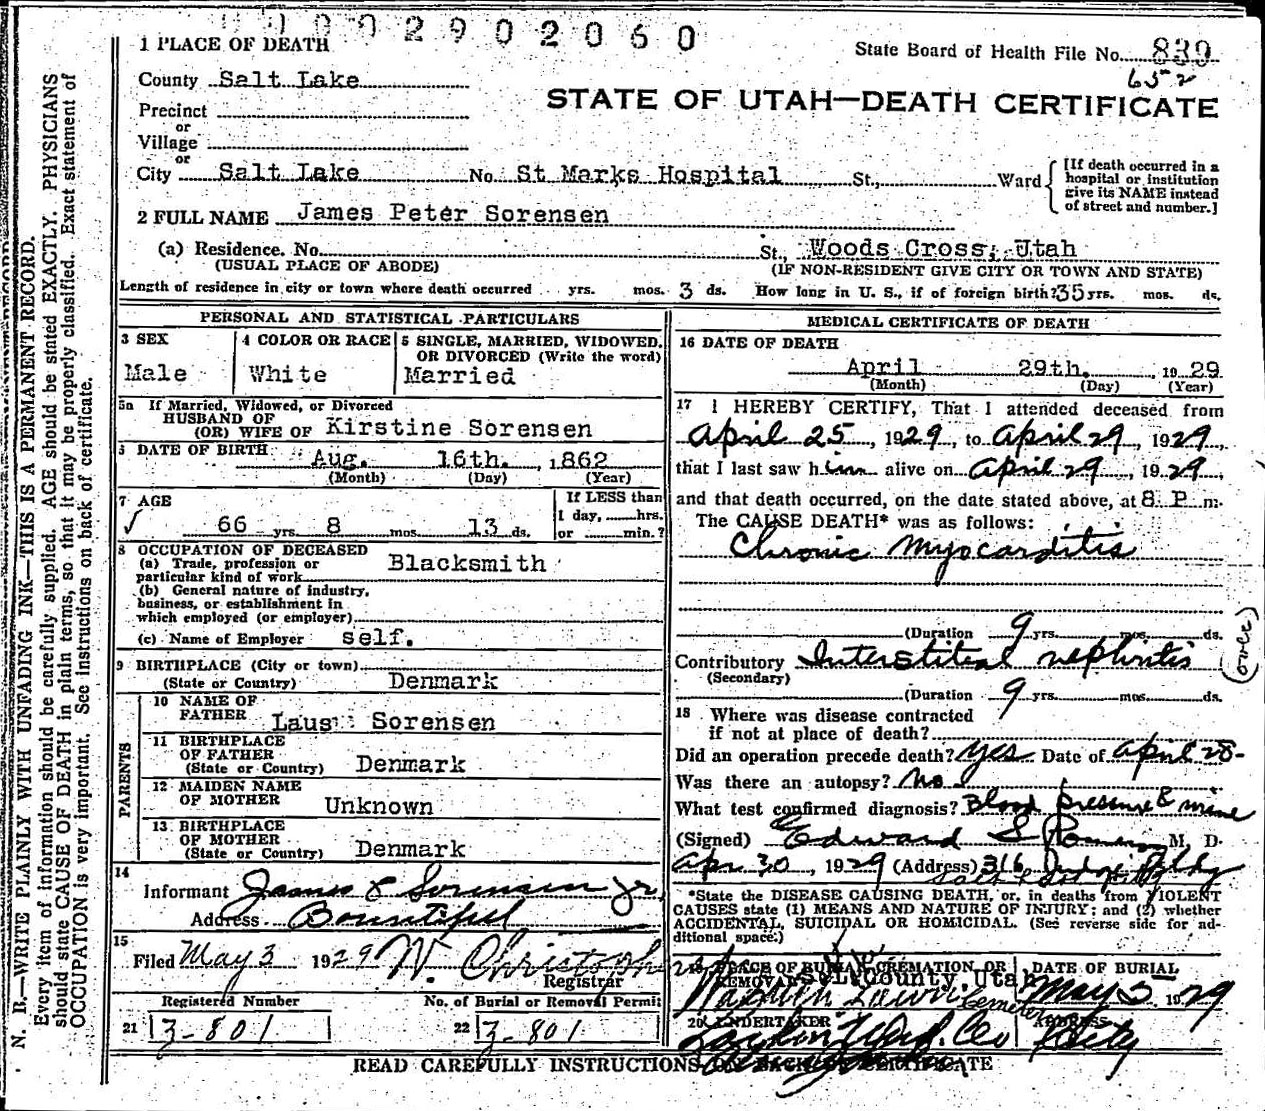 0002902060
1 PLACE OF DEATH
State Board of Health File No. 839
652
County Salt Lake
STATE OF UTAH—DEATH CERTIFICATE
Precinct
or
Village
or
City Salt Lake No. St Marks Hospital St., Ward
[If death occurred in a hospital or institution give its NAME instead of street and number.]
2 FULL NAME James Peter Sorensen
(a) Residence. No. St., Woods Cross, Utah
(USUAL PLACE OF ABODE) (IF NON-RESIDENT GIVE CITY OR TOWN AND STATE)
Length of residence in city or town where death occurred yrs. mos. 3 ds. How long in U. S., if of foreign birth? 35 yrs. mos. ds.
PERSONAL AND STATISTICAL PARTICULARS
3 SEX
Male
4 COLOR OR RACE
White
5 SINGLE, MARRIED, WIDOWED, OR DIVORCED (Write the word)
Married
5a If Married, Widowed, or Divorced
HUSBAND OF
(OR) WIFE OF Kirstine Sorensen
6 DATE OF BIRTH Aug. 16th. , 1862
(Month) (Day) (Year)
7 AGE
66 yrs. 8 mos. 13 ds.
If LESS than
1 day, hrs.
or min.?
8 OCCUPATION OF DECEASED
(a) Trade, profession or particular kind of work Blacksmith
(b) General nature of industry, business, or establishment in which employed (or employer)
(c) Name of Employer self.
9 BIRTHPLACE (City or town)
(State or Country) Denmark
PARENTS
10 NAME OF FATHER Laus Sorensen
11 BIRTHPLACE OF FATHER
(State or Country) Denmark
12 MAIDEN NAME OF MOTHER Unknown
13 BIRTHPLACE OF MOTHER
(State or Country) Denmark
14
Informant James P Sorensen Jr.
Address Bountiful
15
Filed May 3 1929 W. Christoph
Registrar
Registered Number
21 3-801
No. of Burial or Removal Permit
22 3-801
MEDICAL CERTIFICATE OF DEATH
16 DATE OF DEATH
April 29th. , 1929
(Month) (Day) (Year)
17 I HEREBY CERTIFY, That I attended deceased from
April 25, 1929, to April 29, 1929,
that I last saw him alive on April 29, 1929,
and that death occurred, on the date stated above, at 8 P m.
The CAUSE DEATH* was as follows:
Chronic Myocarditis
(Duration 9 yrs. mos. ds.
Contributory Interstitial nephritis
(Secondary)
(Duration 9 yrs. mos. ds.
(over)
18 Where was disease contracted
if not at place of death?
Did an operation precede death? yes Date of April 28-
Was there an autopsy? No
What test confirmed diagnosis? Blood pressure & urine
(Signed) Edward S Pomeroy M. D.
Apr 30, 1929 (Address) 316 Judge Bldg
*State the DISEASE CAUSING DEATH, or, in deaths from VIOLENT CAUSES state (1) MEANS AND NATURE OF INJURY; and (2) whether ACCIDENTAL, SUICIDAL OR HOMICIDAL. (See reverse side for additional space.)
19 PLACE OF BURIAL, CREMATION, OR REMOVAL
S.L. County, Utah
Cemetery
DATE OF BURIAL
May 5 1929
20 UNDERTAKER
Und. Co
ADDRESS
City
READ CAREFULLY INSTRUCTIONS ON BACK OF CERTIFICATE
N. B.—WRITE PLAINLY WITH UNFADING INK—THIS IS A PERMANENT RECORD.
Every item of information should be carefully supplied. AGE should be stated EXACTLY. PHYSICIANS
should state CAUSE OF DEATH in plain terms, so that it may be properly classified. Exact statement of
OCCUPATION is very important. See instructions on back of certificate.